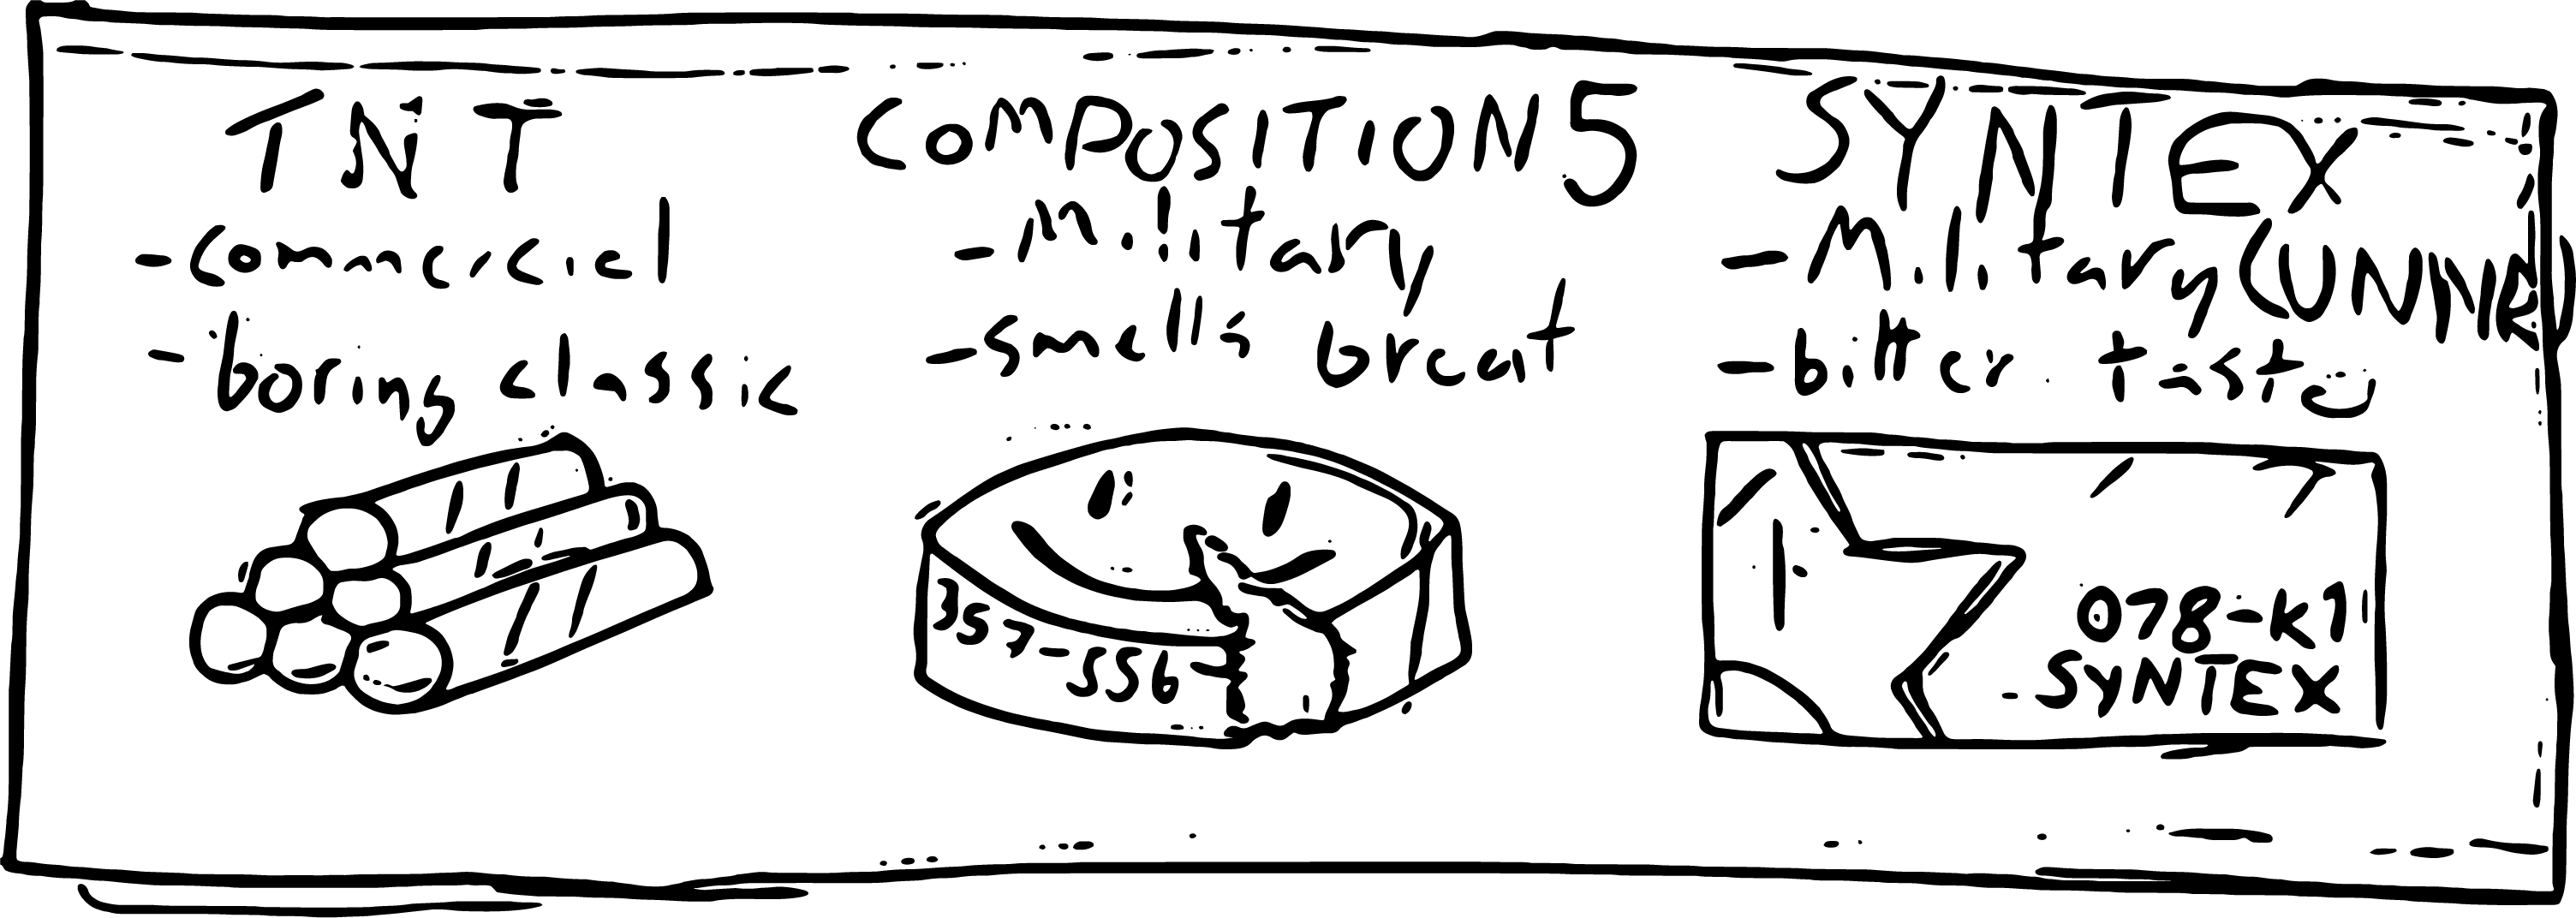 TNT
-commercial
-boring classic
COMPOSITION 5
-Military
-smells great
SYNTEX
-Military
-bitter taste
357-556-
078-K1
SYNTEX